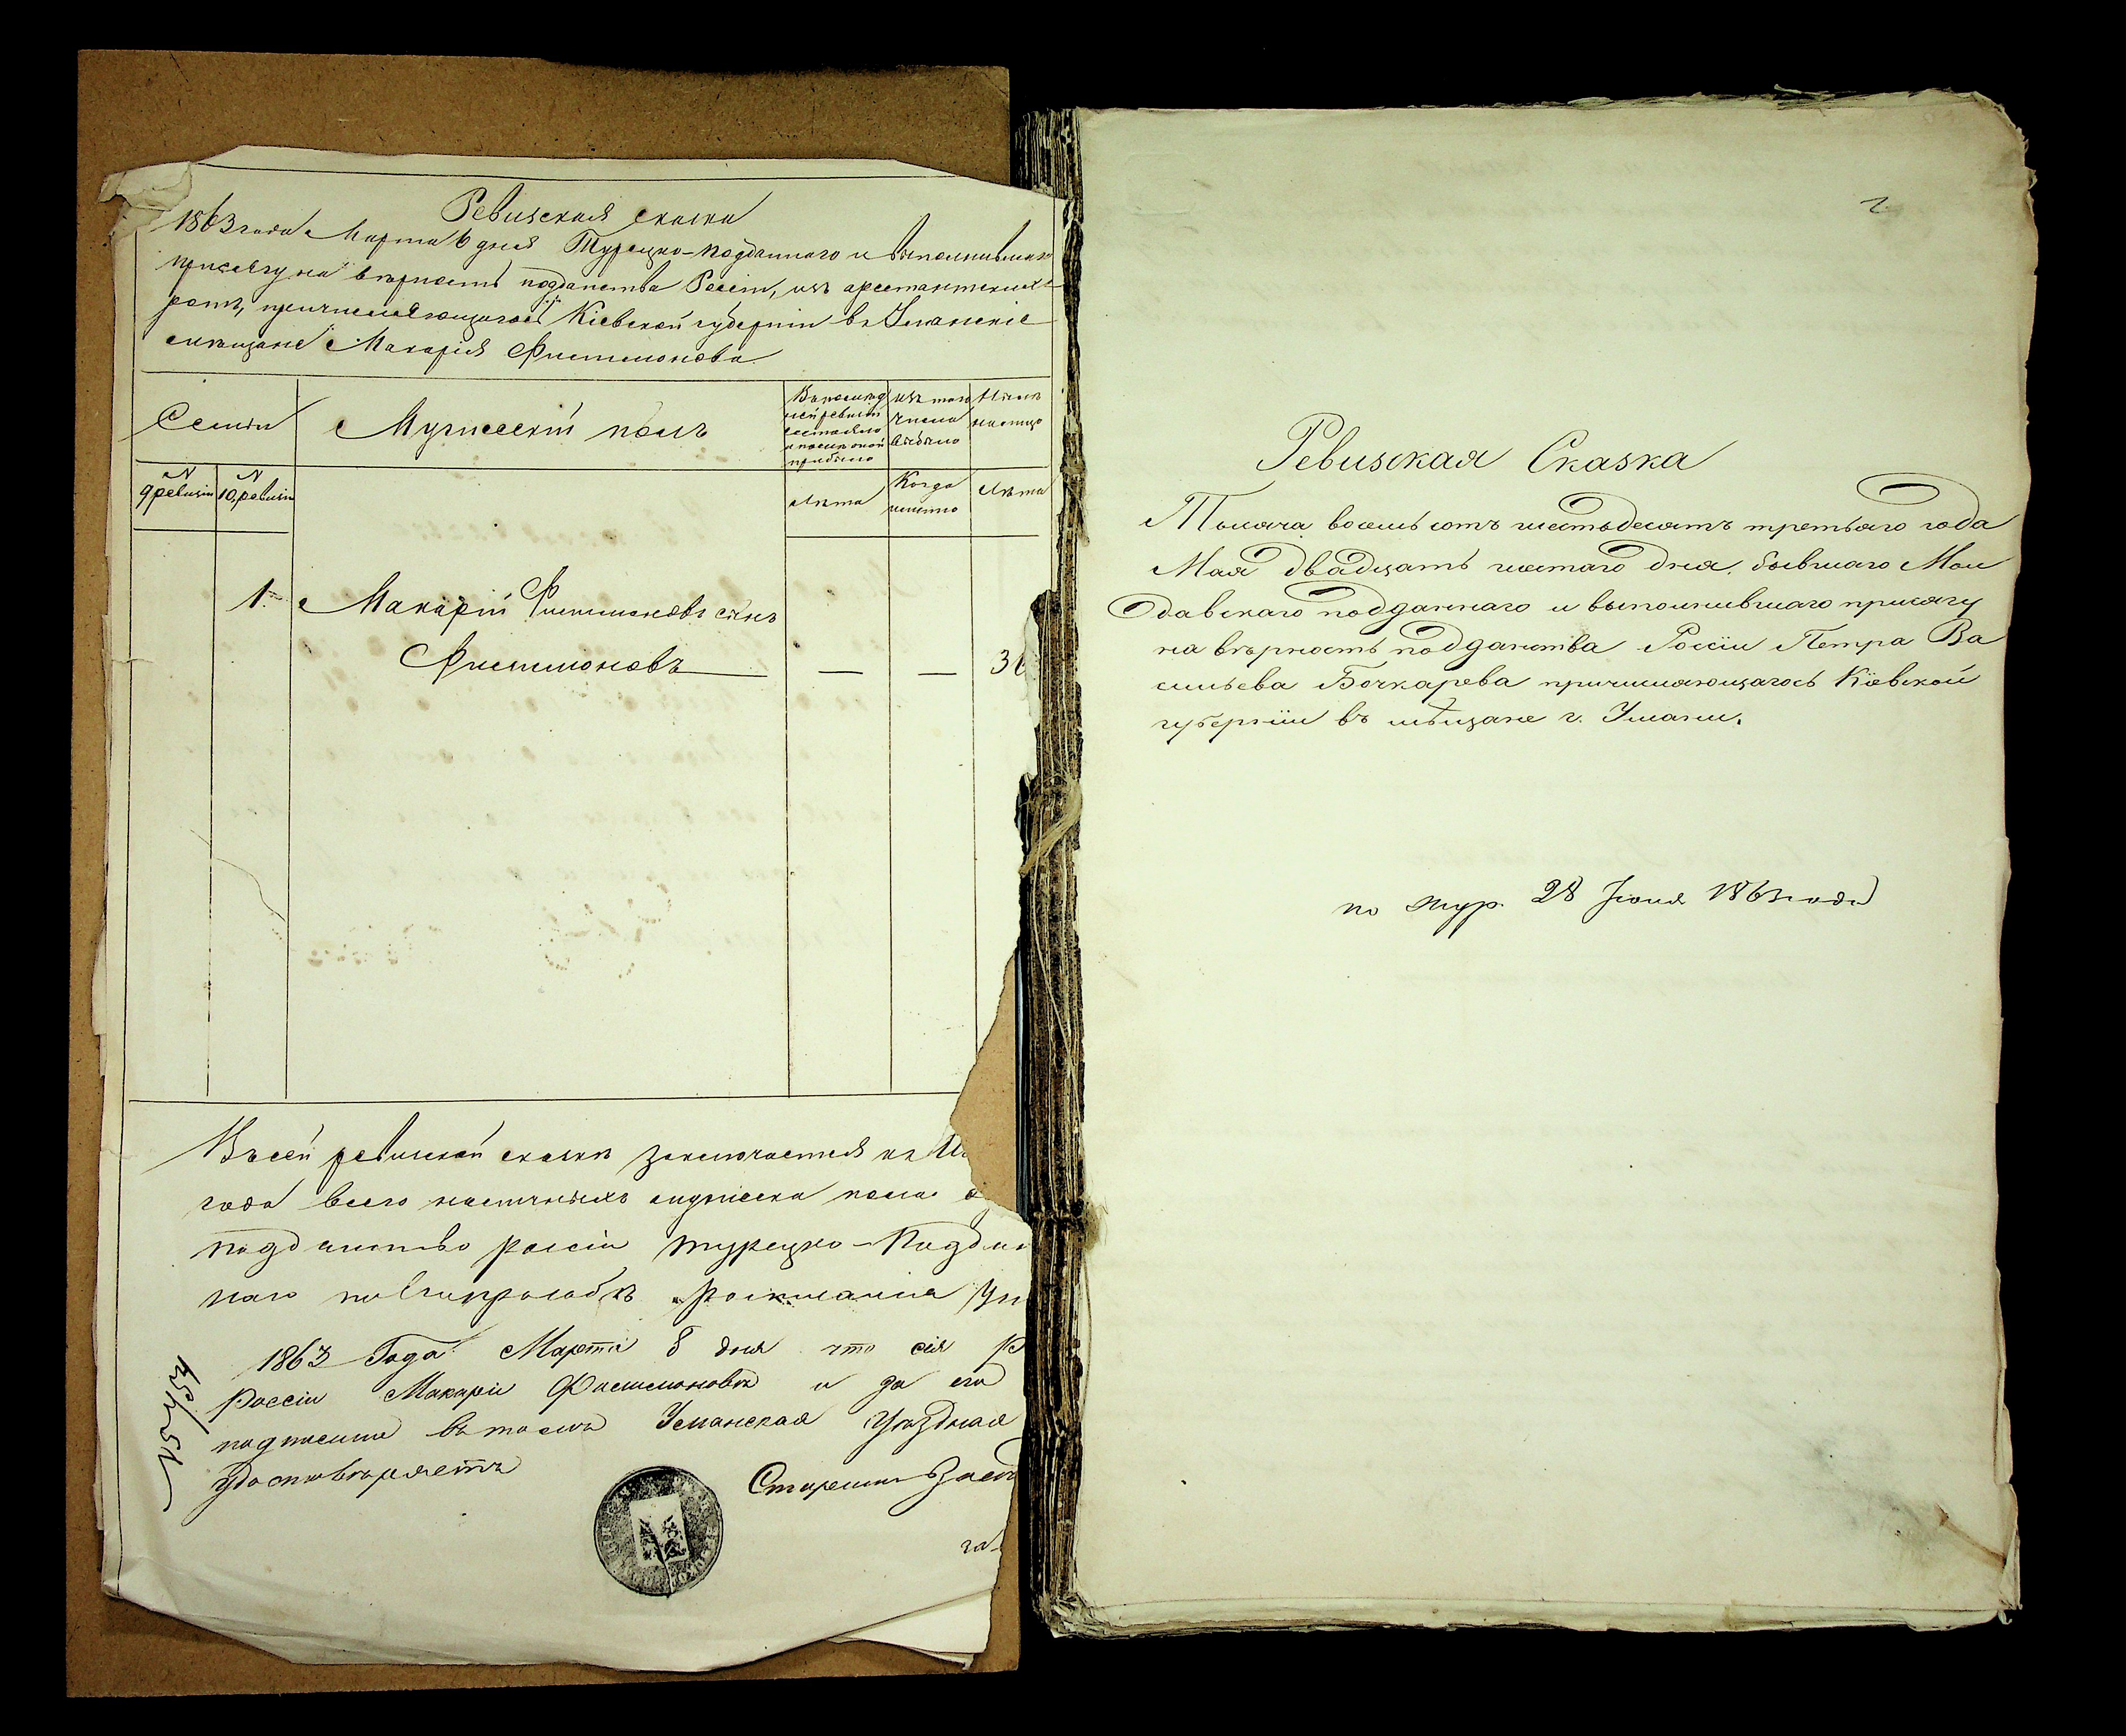 Ревизская сказка
1863 года Марта 6 дня Турецко-подданного и выполнившаго
присягу на верность подданства Россіи, изъ арестантскихъ
ротъ, причисляющагося Кіевской губерніи въ Уманскіе
мѣщане Макарія Филимонова
Семьи
Мужескій полъ
Въ послѣд
ней ревизіи
состояло
и послѣ оной
прибыло
изъ того
числа
выбыло
Нынѣ
на лицо
N
9 ревизіи
N
10 ревизіи
лѣта
Когда
именно
лѣта
1. Макарій Филимоновъ сынъ
Филимоновъ — —
Въ сей ревизской сказкѣ заключается къ
года всего наличныхъ мужеска пола
подданство россіи турецко-Поддан
наго
1863 Года Марта 8 дня что сія
Россіи Макарій Филимоновъ и за его
подписью въ томъ Уманская Уѣздная
удостовѣряетъ
2.
Ревизская Сказка
Тысяча восемь сотъ шестьдесятъ третьяго года
Мая двадцать шестаго дня. бывшаго Мол
давскаго подданнаго и выполнившаго присягу
на вѣрность подданства Россіи Петра Ва
сильева Бочкарева причисляющагось Кіевской
губерніи въ мѣщане г. Умани.
по жур. 28 Іюня 1863 года